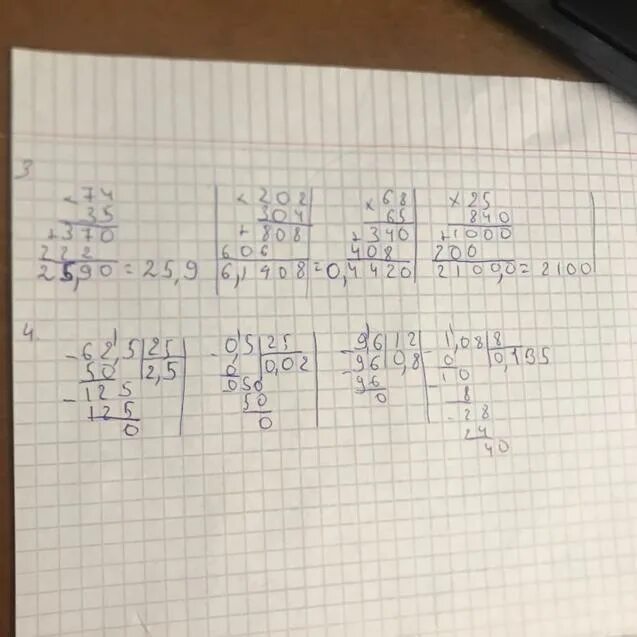 3
× 74 × 202 × 68 × 25
35 304 65 840
+ 370 + 808 + 340 + 1000
222 606 408 200
25,90 = 25,9 6,1408 = 0,4420 2100,0 = 2100
4.
- 62,5 25 - 0,5 25 - 9,6 12 - 1,08 8
50 2,5 0, 0,02 - 96 0,8 0 0,135
- 125 050 96 10
125 50 0 - 8
0 0 - 28
24
40